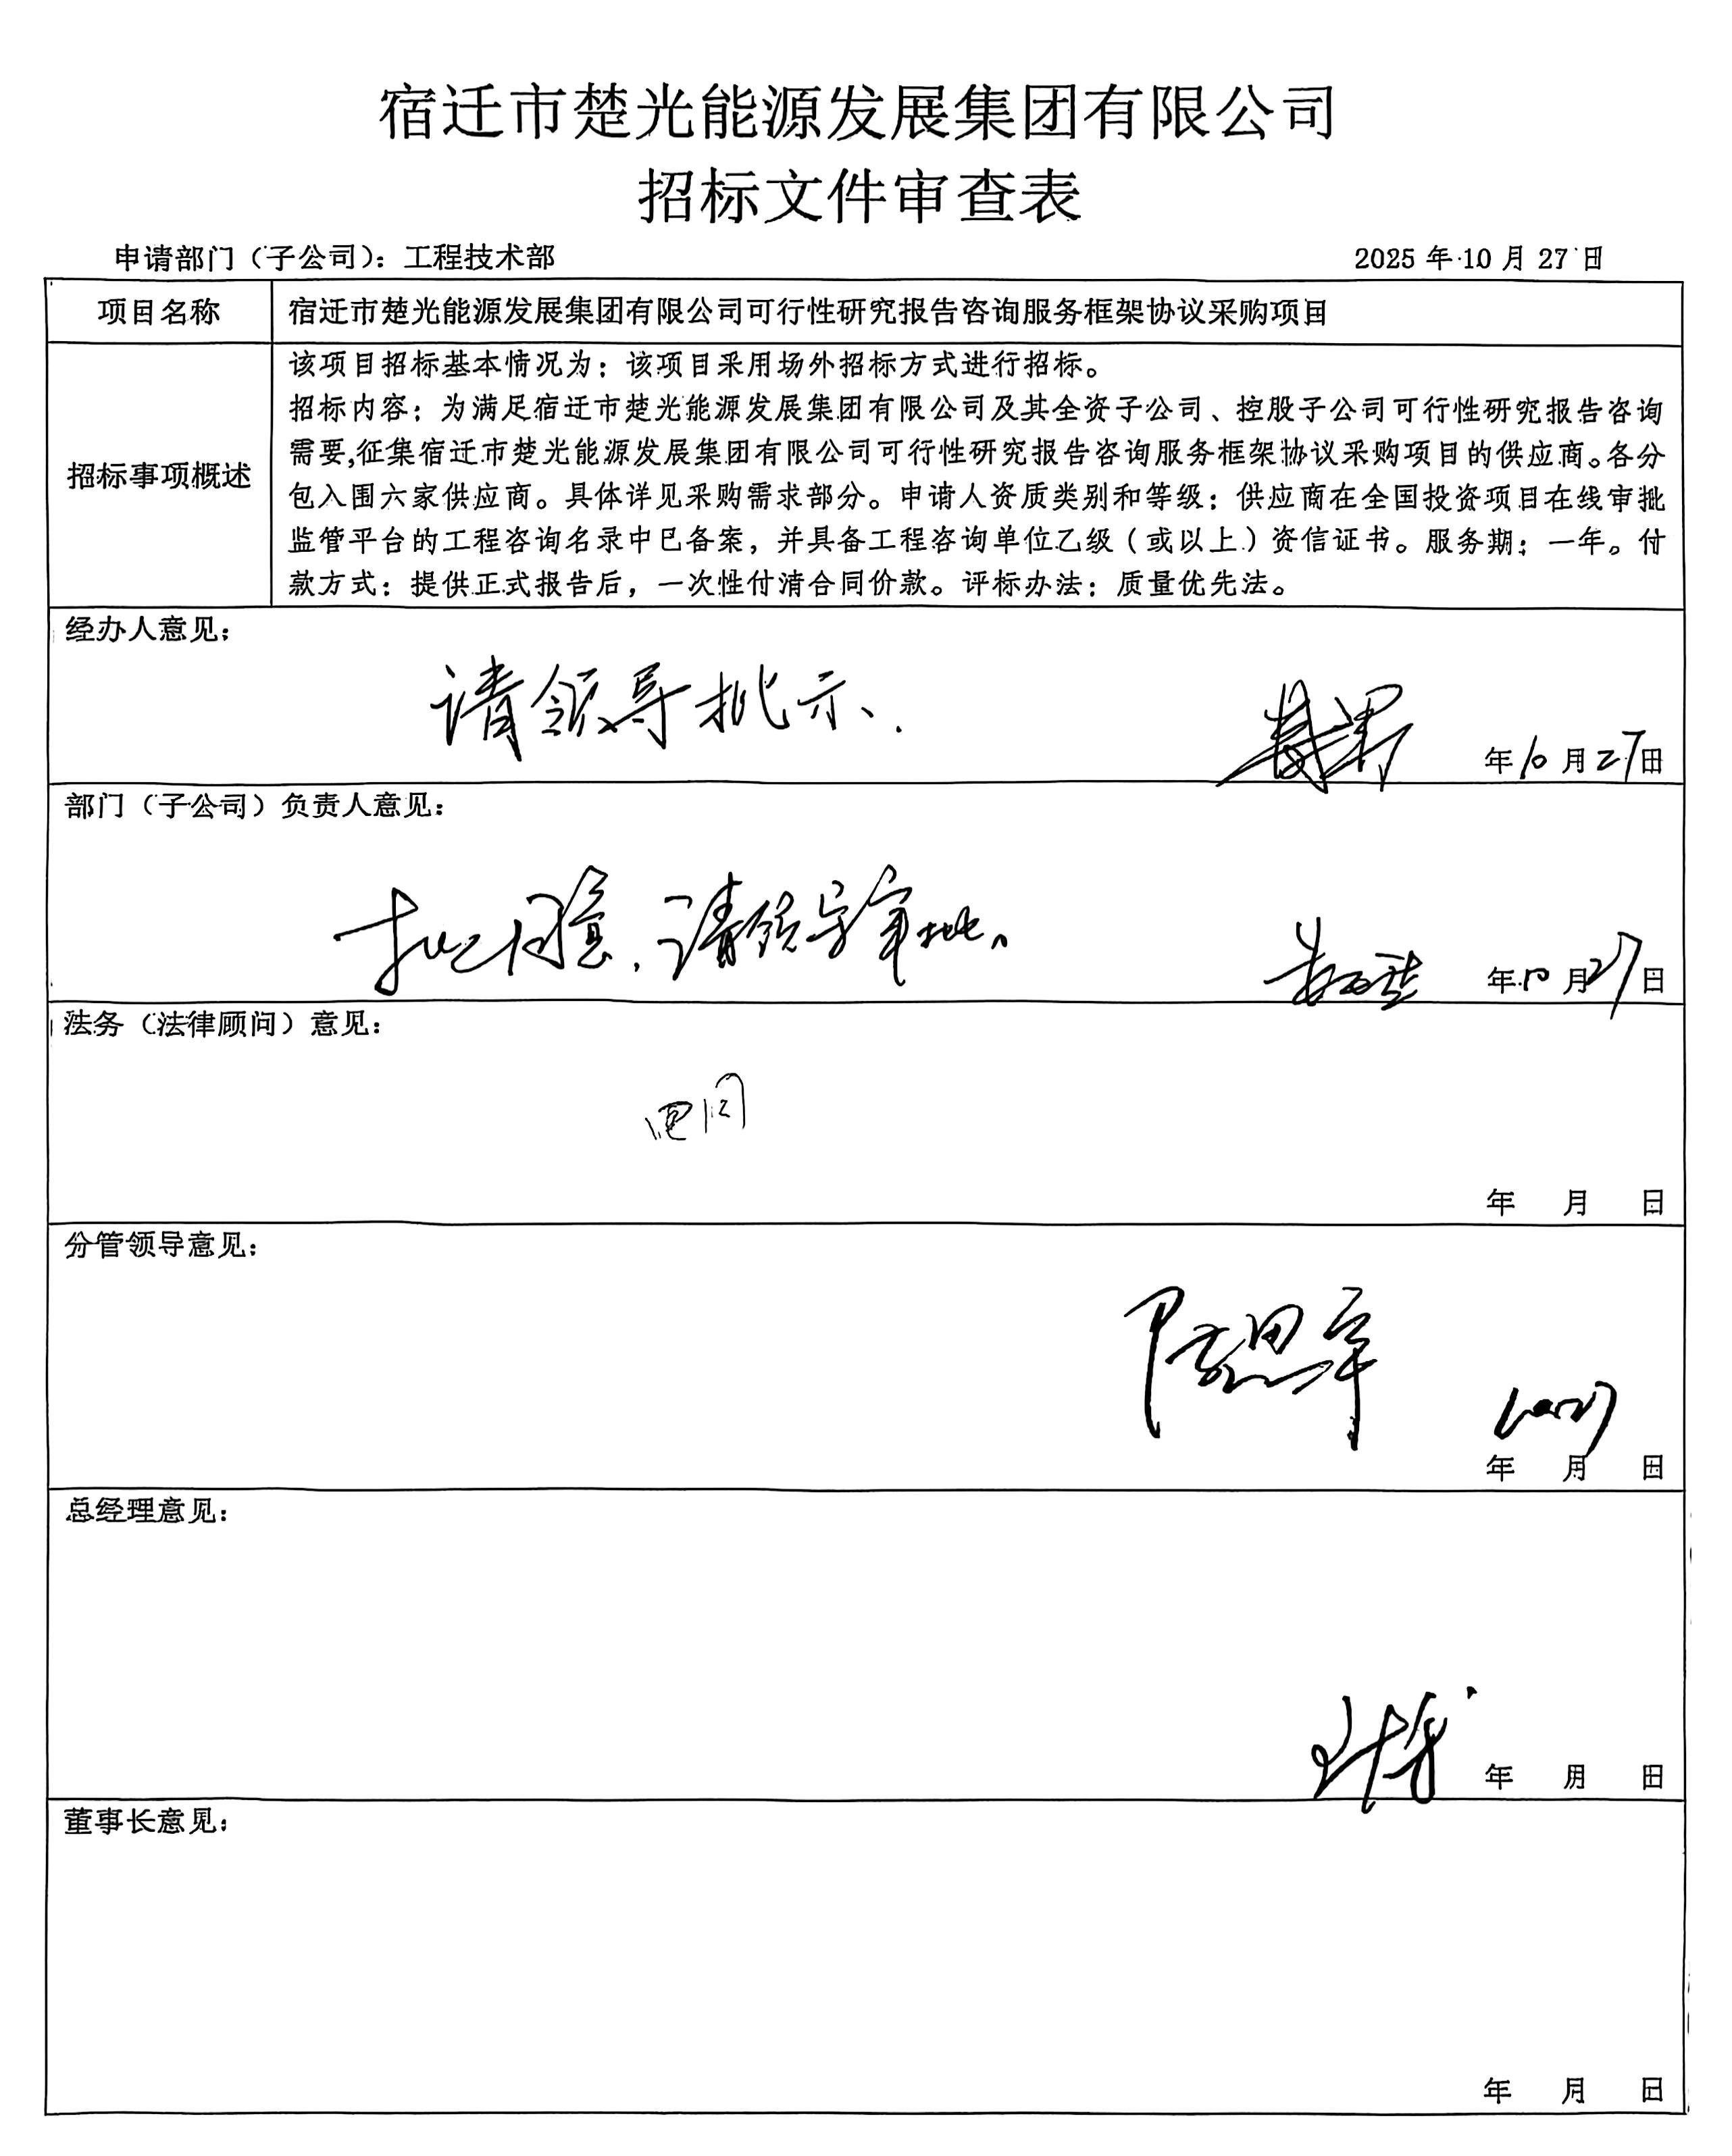 宿迁市楚光能源发展集团有限公司
招标文件审查表
申请部门（子公司）：工程技术部 2025 年 10 月 27 日
项目名称 宿迁市楚光能源发展集团有限公司可行性研究报告咨询服务框架协议采购项目
招标事项概述
该项目招标基本情况为：该项目采用场外招标方式进行招标。
招标内容：为满足宿迁市楚光能源发展集团有限公司及其全资子公司、控股子公司可行性研究报告咨询
需要,征集宿迁市楚光能源发展集团有限公司可行性研究报告咨询服务框架协议采购项目的供应商。各分
包入围六家供应商。具体详见采购需求部分。申请人资质类别和等级：供应商在全国投资项目在线审批
监管平台的工程咨询名录中已备案，并具备工程咨询单位乙级（或以上）资信证书。服务期：一年。付
款方式：提供正式报告后，一次性付清合同价款。评标办法：质量优先法。
经办人意见：
请领导批示.
年10月27日
部门（子公司）负责人意见：
同意，请领导审批。
年10月27日
法务（法律顾问）意见：
年 月 日
分管领导意见：
10.27
年 月 日
总经理意见：
年 月 日
董事长意见：
年 月 日